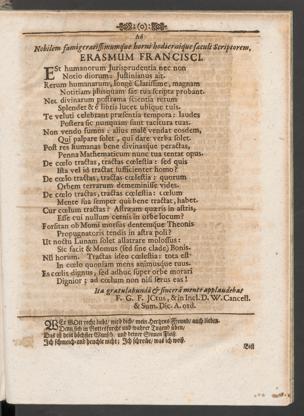 :(o):
Ad
Nobilem famigeratissimumque horni hodierniqve seculi Scriptorem,
ERASMUM FRANCISCI.
Est humanorum Jurisprudentia nec non
Notio diorum: Justinianus ait.
Rerum humanarum, longè Clarissime, magnam
Notitiam jamquam sat tua scripta probant.
Nec divinarum postrema scientia rerum
Splendet & è libris lucet ubique tuis.
Te veluti celebrant præsentia tempora: laudes
Postera sic nunquam sunt tacitura tuas.
Non vendo fumos: alius malè vendat eosdem,
Qui palpare solet, qui dare verba solet.
Post res humanas bene divinasque peractas,
Penna Mathematicum nunc tua tentat opus.
De cœlo tractas, tractas cœlestia: sed quis
Ista vel id tractat sufficienter homo?
De cœlo tractas, tractas cœlestia: quorum
Orbem terrarum dememinisse vides.
De cœlo tractas, tractas cœlestia: cœlum
Mente sua semper qui bene tractat, habet.
Cur cœlum tractas? Astræam quæris in astris,
Esse cui nullum cernis in orbe locum?
Forsitan ob Momi morsus dentemque Theonis
Propugnatoris tendis in astra poli?
Ut noctu Lunam solet allatrare molossus:
Sic facit & Momus (sed sine clade) Bonis.
Nil horum. Tractas ideo cœlestia: tota est
In cœlo quoniam mens animusque tuus.
Es cœlis dignus, sed adhuc super orbe morari
Dignior; ad cœlum non nisi serus eas!
Ita gratulabundâ & sincerâ mente applaudebat
F. G. F. JCtus, & in Incl. D. W. Cancell.
& Sum. Dic. A. ord.
Wer GOtt recht liebt, wird dich, mein Hertzens Freund, auch lieben.
Denn sich in Gottesfurcht und wahrer Tugend üben,
Das ist dein höchster Wunsch, und deiner Sinnen Fleiß.
Ich schmeich- und heuchle nicht; Ich schreibe, was ich weiß.
Bist